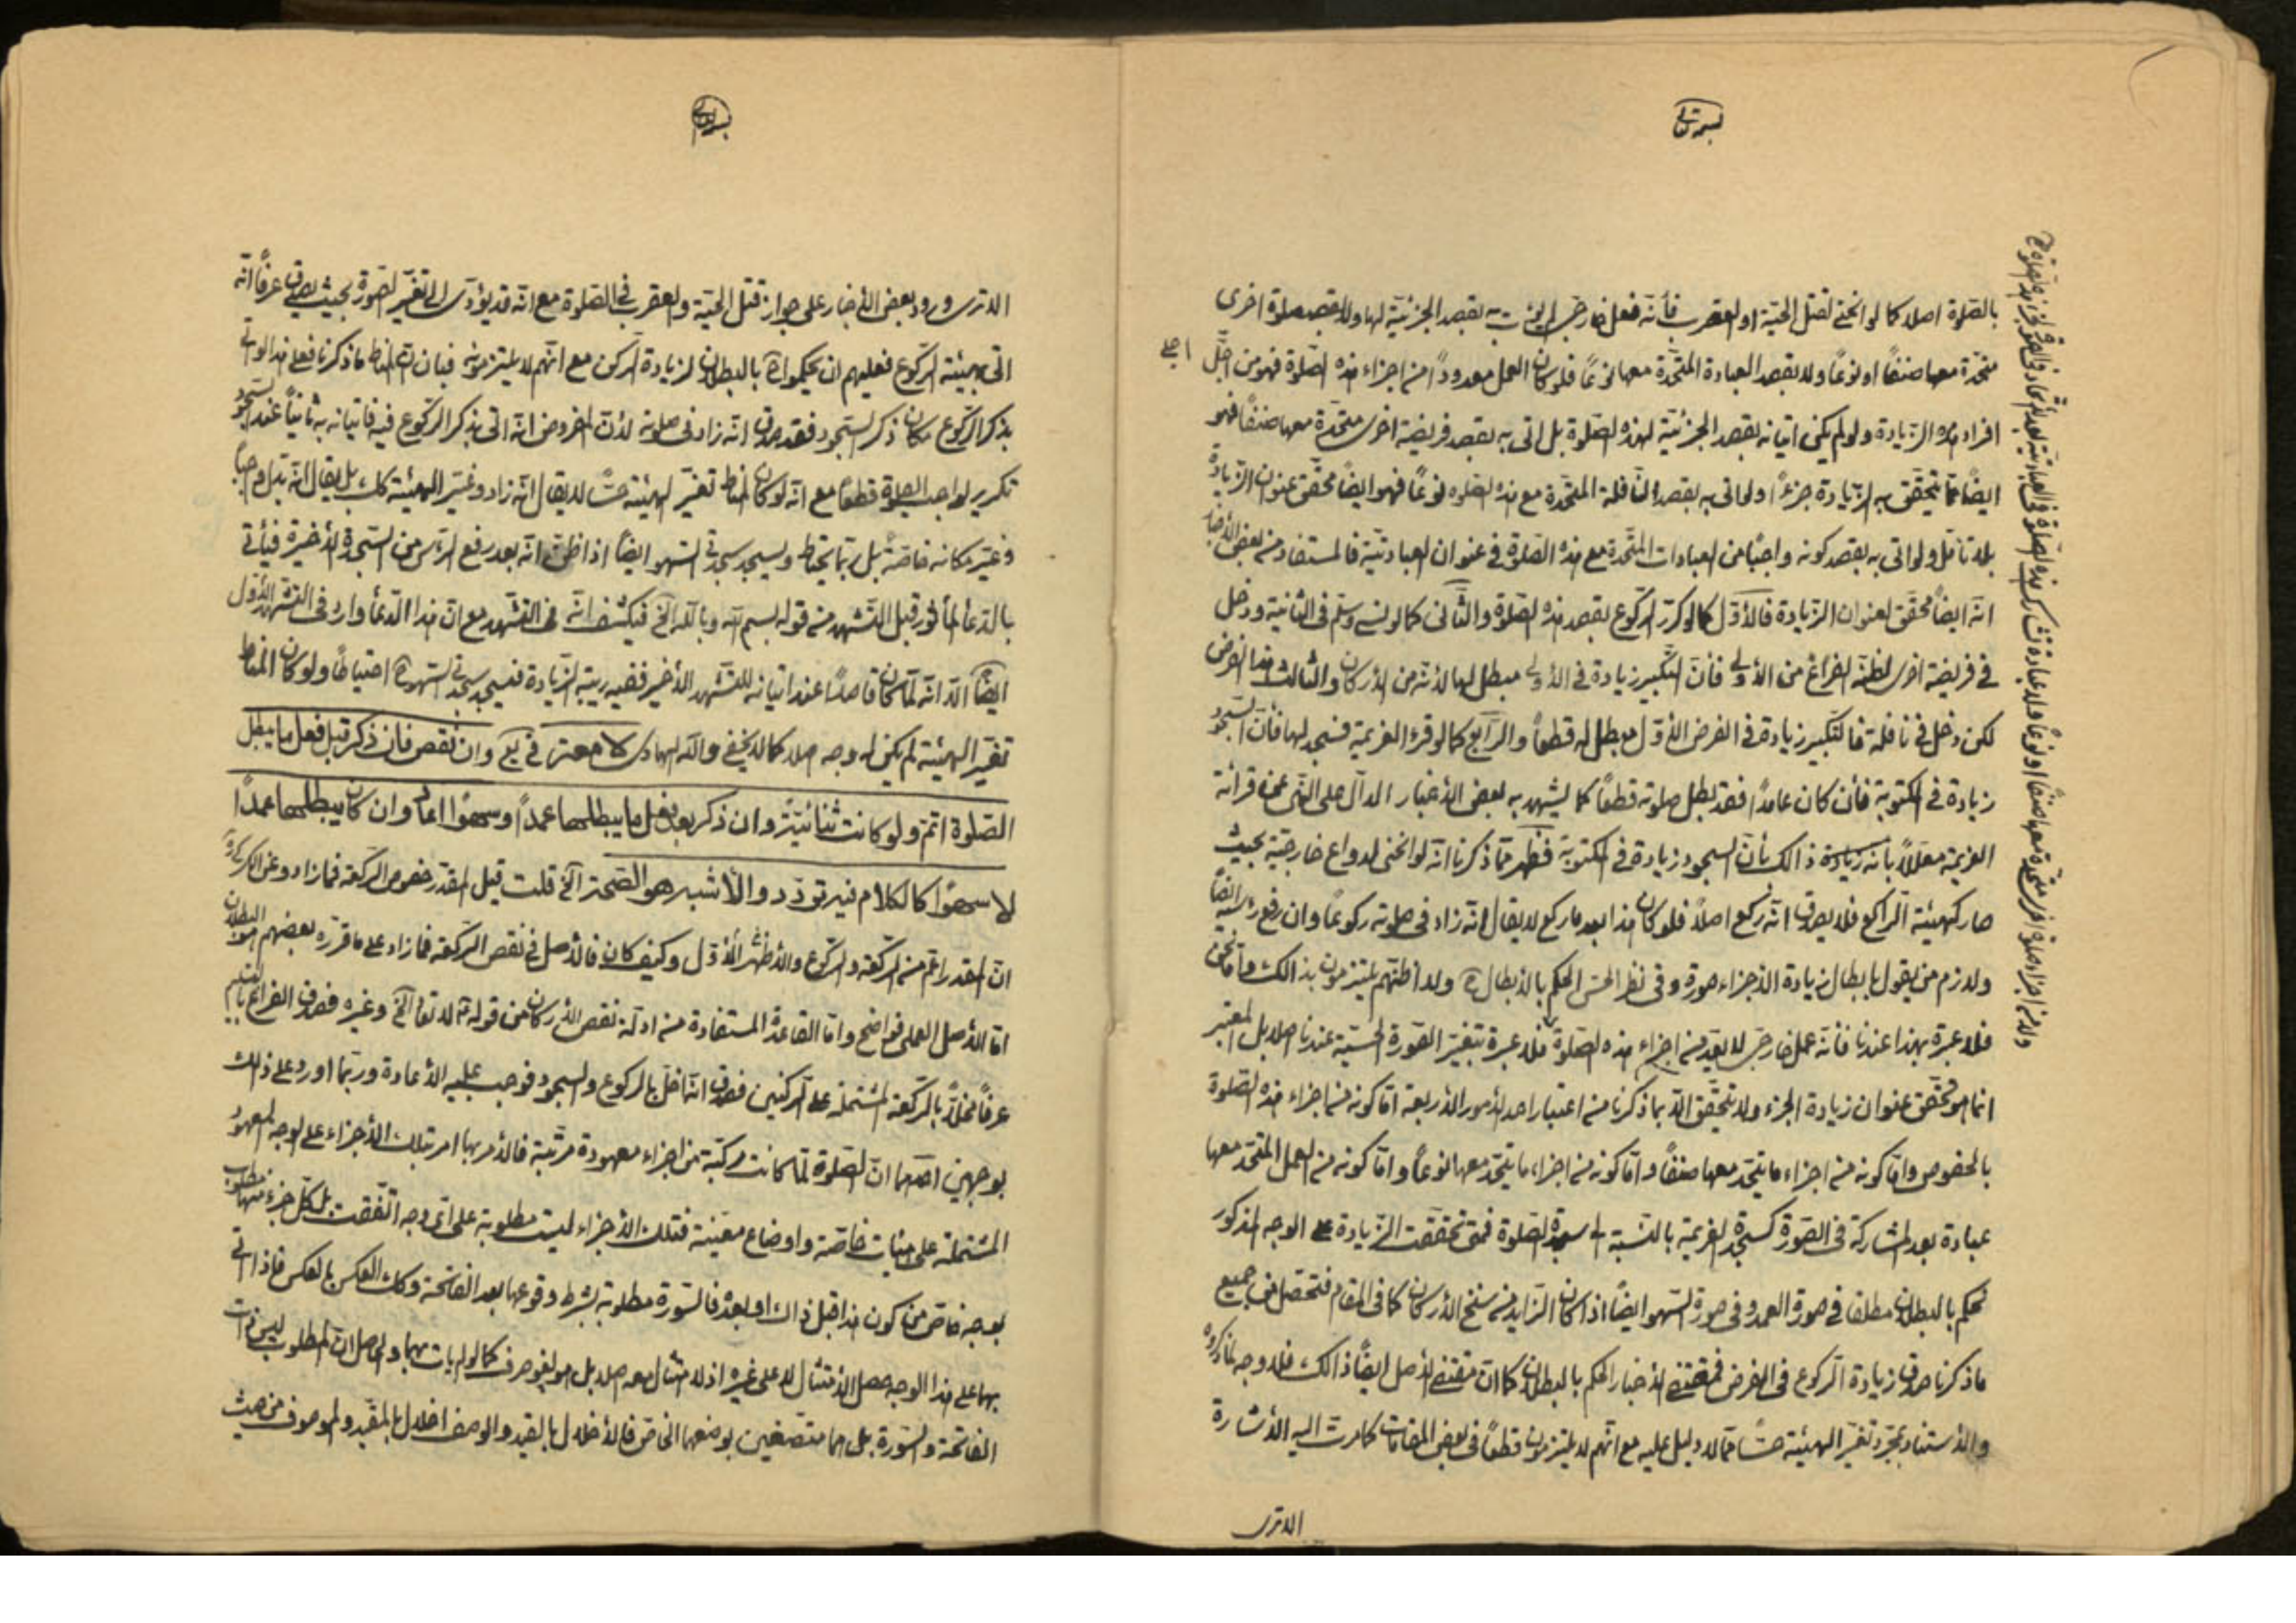 بسمه تعالی
بالصلوة اصلا كما لو انحنى لقتل الحيّة او العقرب فأنّه فعل خارجى لم يؤت به بقصد الجزئيّة لها ولا بقصد صلوة اخرى
متحّدة معها صنفًا او نوعًا ولا بقصد العبادة المتحّدة معها نوعًا فلو كان العمل معدودًا من اجزاء هذه الصّلوة فهو من اجلّ
اجلى
افراد هذه الزّيادة ولو لم يكن اتيانه بقصد الجزئيّة لهذه الصّلوة بل اتى به بقصد فريضة اخرى متحّدة معها صنفًا فهو
ايضًا ممّا يتحقّق به الزّيادة جزءً او لو اتى به بقصد النّافلة المتحّدة مع هذه الصّلوة نوعًا فهو ايضًا محقّق عنوان الزّيادة
بلا تأمّل ولو اتى به بقصد كونه واجبًا من العبادات المتّحدة مع هذه الصّلوة فى عنوان العباديّة فالمستفاد من بعض الأخبار
انّه ايضًا محقّق لعنوان الزّيادة فالأوّل كما لو كرّر الرّكوع بقصد هذه الصّلوة والثّانى كما لو نسى وسلّم فى الثّانية ودخل
فى فريضة اخرى لظنّه الفراغ من الأولى فأنّ التّكبير زيادة فى الأولى مبطل لها لأنّه من الأركان والثّالث هذا الفرض
لكن دخل فى نافلة فالتّكبير زيادة فى الفرض الأوّل مبطل له قطعًا والرّابع كما لو قرء العزيمة فسجد لها فأنّ السّجود
زيادة فى المكتوبة فأن كان عامدًا فقد بطل صلوته قطعًا كما يشهد به بعض الأخبار الدالّ على النّهى عن قرائة
العزيمة معلّلًا بانّه زيادة ذالك بأنّ السجود زيادة فى المكتوبة فظهر ممّا ذكرنا انّه لو انحنى لدواع خارجيّة بحيث
صار كهيئة الرّاكع فلا يصدق انّه ركع اصلًا فلو كان هذا بعد ما ركع لا يقال انّه زاد فى صلوته ركوعًا وان رفع رأسه ايضًا
ولازم من يقول بابطال زيادة الأجزاء صورة وفى نظر الحسّ الحكم بالأبطال ولا اظنّهم يلتزمون بذالك وامّا نحن
فلا عبرة بهذا عندنا فأنّه عمل خارجى لا يعدّ من اجزاء هذه الصّلوة فلا عبرة بتغيّر الصّورة الحسّيّة عندنا اصلا بل المعتبر
انّما هو تحقّق عنوان زيادة الجزء ولا يتحقّق الّا بما ذكرنا من اعتبار احد الأمور الأربعة امّا كونه من اجزاء هذه الصّلوة
بالخصوص وامّا كونه من اجزاء ما يتّحد معها صنفًا وامّا كونه من اجزاء ما يتّحد معها نوعًا وامّا كونه من العمل المتّحد معها
عبادة بعد المشاركة فى الصّورة كسجدة العزيمة بالنّسبة الى سجدة الصّلوة فمتى تحقّقت الزّيادة على الوجه المذكور
نحكم بالبطلان مطلقا فى صورة العمد وفى صورة السّهو ايضًا اذا كان الزّايد من سنخ الأركان كما فى المقام فتحصّل من جميع
ما ذكرنا صدق زيادة الرّكوع فى الفرض فمقتضى الأخبار الحكم بالبطلان كما انّ مقتضى الأصل ايضًا ذالك فلا وجه لما ذكروه
والأستناد بمجرّد تغيّر الهيئة حسًّا ممّا لا دليل عليه مع انّهم لا يلتزمون قطعًا فى بعض المقامات كما مرّت اليه الأشارة
الا ترى
بسمه تعالی
الا ترى ورود بعض الأخبار على جواز قتل الحيّة والعقرب فى الصّلوة مع انّه قد يؤدّى الى تغيّر الصّورة بحيث يصدق عرفًا انّه
اتى بهيئة الرّكوع فعليهم ان يحكموا بالبطلان لزيادة الرّكن مع انّهم لا يلتزمونه فبان انّ المناط ما ذكرنا فعلى هذا لو اتى
بذكر الرّكوع مكان ذكر السّجود فقد صدق انّه زاد فى صلوته لأنّ المفروض انّه اتى بذكر الرّكوع فيه فاتيانه به ثانيًا عند السّجود
تكرير لواجب الصلوة قطعًا مع انّه لو كان المناط تغيّر الهيئة حسًّا لا يقال انّه زاد وغيّر الهيئة كك بل يقال انّه بدّل واجبًا
وغيّر مكانه خاصّة بل ربّما يحتاط ويسجد سجدتى السّهو ايضًا اذا ظنّ انّه بعد رفع الرّأس من السّجدة الأخيرة فيأتى
بالدّعأ المأثور قبل التّشهد من قوله بسم الله وبالله الخ فيكشف انّه فى التّشهد مع انّ هذا الدّعأ وارد فى التّشهد الأوّل
ايضًا الّا انّه لمّا كان قاصدًا عند اتيانه للتّشهد الأخير ففيه ريبة الزّيادة فيسجد سجدتى السّهو احتياطًا ولو كان المناط
تغيّر الهيئة لم يكن له وجه اصلا كما لا يخفى والله الهادى قوله وان نقص فان ذكر قبل فعل ما يبطل
الصّلوة اتمّ ولو كانت ثنائيّة وان ذكر بعد فعل ما يبطلها عمدًا وسهوًا اعاد وان كان يبطلها عمدًا
لا سهوًا كالكلام فيه تردّد والأشبه هو الصّحة الخ قلت قيل المقدّر خصوص الرّكعة فما زاد وعن
انّ المقدّر اعمّ من الرّكعة والرّكوع والأظهر الأوّل وكيف كان فالأصل فى نقص الرّكعة فما زاد على ما قرّره بعضهم هو البطلان
امّا الأصل العملى فواضح وامّا القاعدة المستفادة من ادلّة نقص الأركان من قوله لا تعاد الخ وغيره فصدق الفراغ بالتسليم
عرفًا مخلًّا بالرّكعة المشتملة على الرّكنين فصدق انّه اخلّ بالركوع والسجود فوجب عليه الأعادة وربّما اورد على ذلك
بوجهين احدهما انّ الصّلوة لمّا كانت مركّبة من اجزاء معهودة مرتّبة فالأمر بها امر بتلك الأجزاء على الوجه المعهود
المشتملة على هيئات خاصّة واوضاع معيّنة فتلك الأجزاء ليست مطلوبة على اىّ وجه اتّفقت بل كلّ جزء منها مطلوب
بوجه خاصّ من كون هذا قبل ذاك او بعده فالسّورة مطلوبة بشرط وقوعها بعد الفاتحة وكك العكس بالعكس فاذا اتى
بها على هذا الوجه حصل الأمتثال لا على غيره اذ لا امتثال معه اصلا بل هو لغو صرف كما لو لم يات بهما والحاصل انّ المطلوب ليس ذات
الفاتحة والسّورة بل هما متّصفين بوصفهما الخاصّ فالأخلال بالقيد والوصف اخلال بالمقيّد والموصوف من حيث